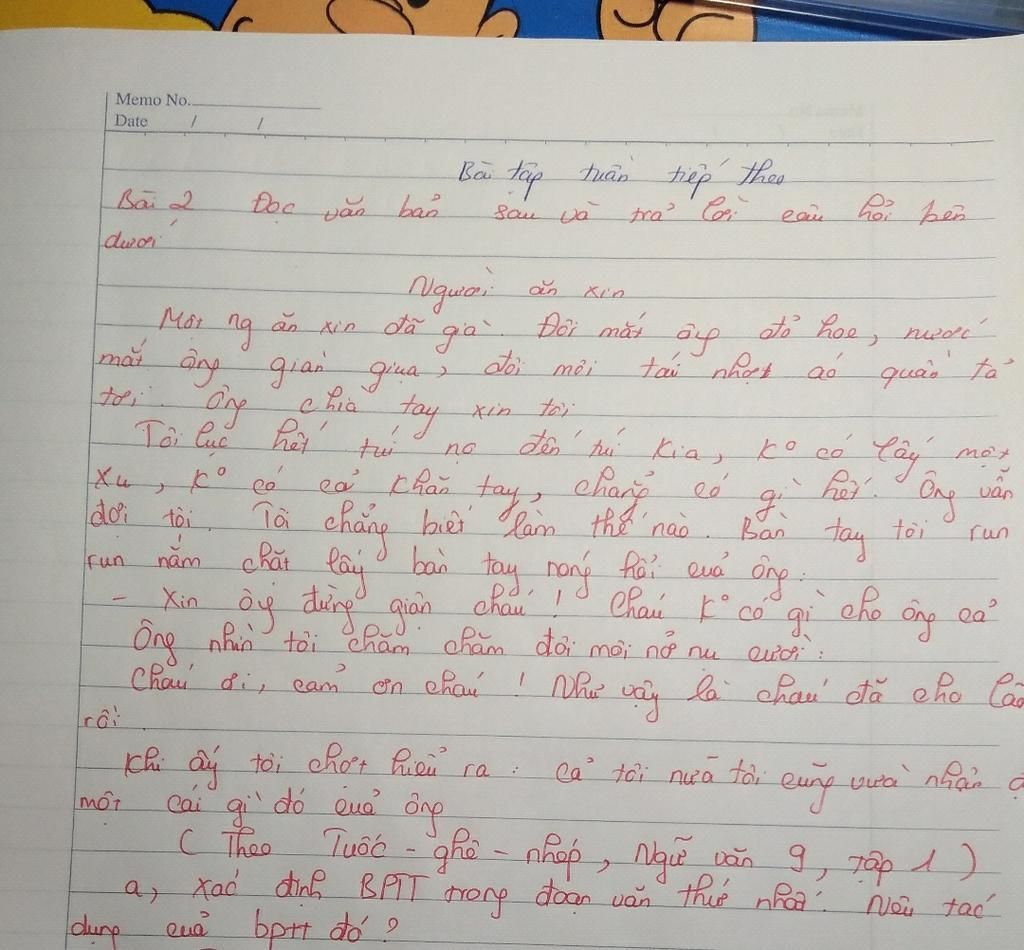 Memo No.
Date / /
Bài tập tuần tiếp theo
Bài 2 Đọc văn bản sau và trả lời câu hỏi bên
dưới
Người ăn xin
Một ng ăn xin đã già. Đôi mắt ông đỏ hoe, nước
mắt ông giàn giụa, đôi môi tái nhợt áo quần tả
tơi. Ông chìa tay xin tôi
Tôi lục hết túi nọ đến túi kia, k° có lấy một
xu, k° có cả khăn tay, chẳng có gì hết. Ông vẫn
đợi tôi. Tôi chẳng biết làm thế nào. Bàn tay tôi run
run nắm chặt lấy bàn tay nóng hổi quả ông:
- Xin ông đừng giận cháu! Cháu k° có gì cho ông cả
Ông nhìn tôi chăm chăm đôi môi nở nụ cười:
Cháu ơi, cảm ơn cháu! Như vậy là cháu đã cho lão
rồi.
Khi ấy tôi chợt hiểu ra: cả tôi nữa tôi cũng vừa nhận đ
một cái gì đó quả ông
(Theo Tuốc-ghê-nhép, Ngữ văn 9, tập 1)
a, xác định BPTT trong đoạn văn thứ nhất. Nêu tác
dụng quả bptt đó?